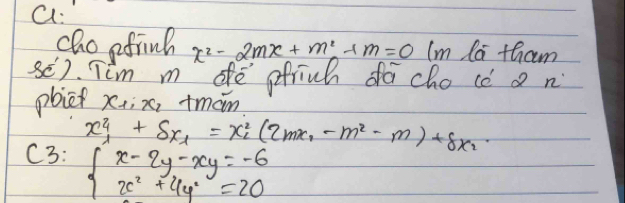 C1:
Cho pfrình x² - 2mx + m² + m = 0 (m là tham
số). Tìm m để pfrình đã cho có 2 n⁰
pbiệt x₁; x₂ t/mãn
x₁⁴ + 8x₁ = x₂² (2mx₁ - m² - m) + 8x₂.
C3: { x - 2y - xy = -6
x² + 4y² = 20